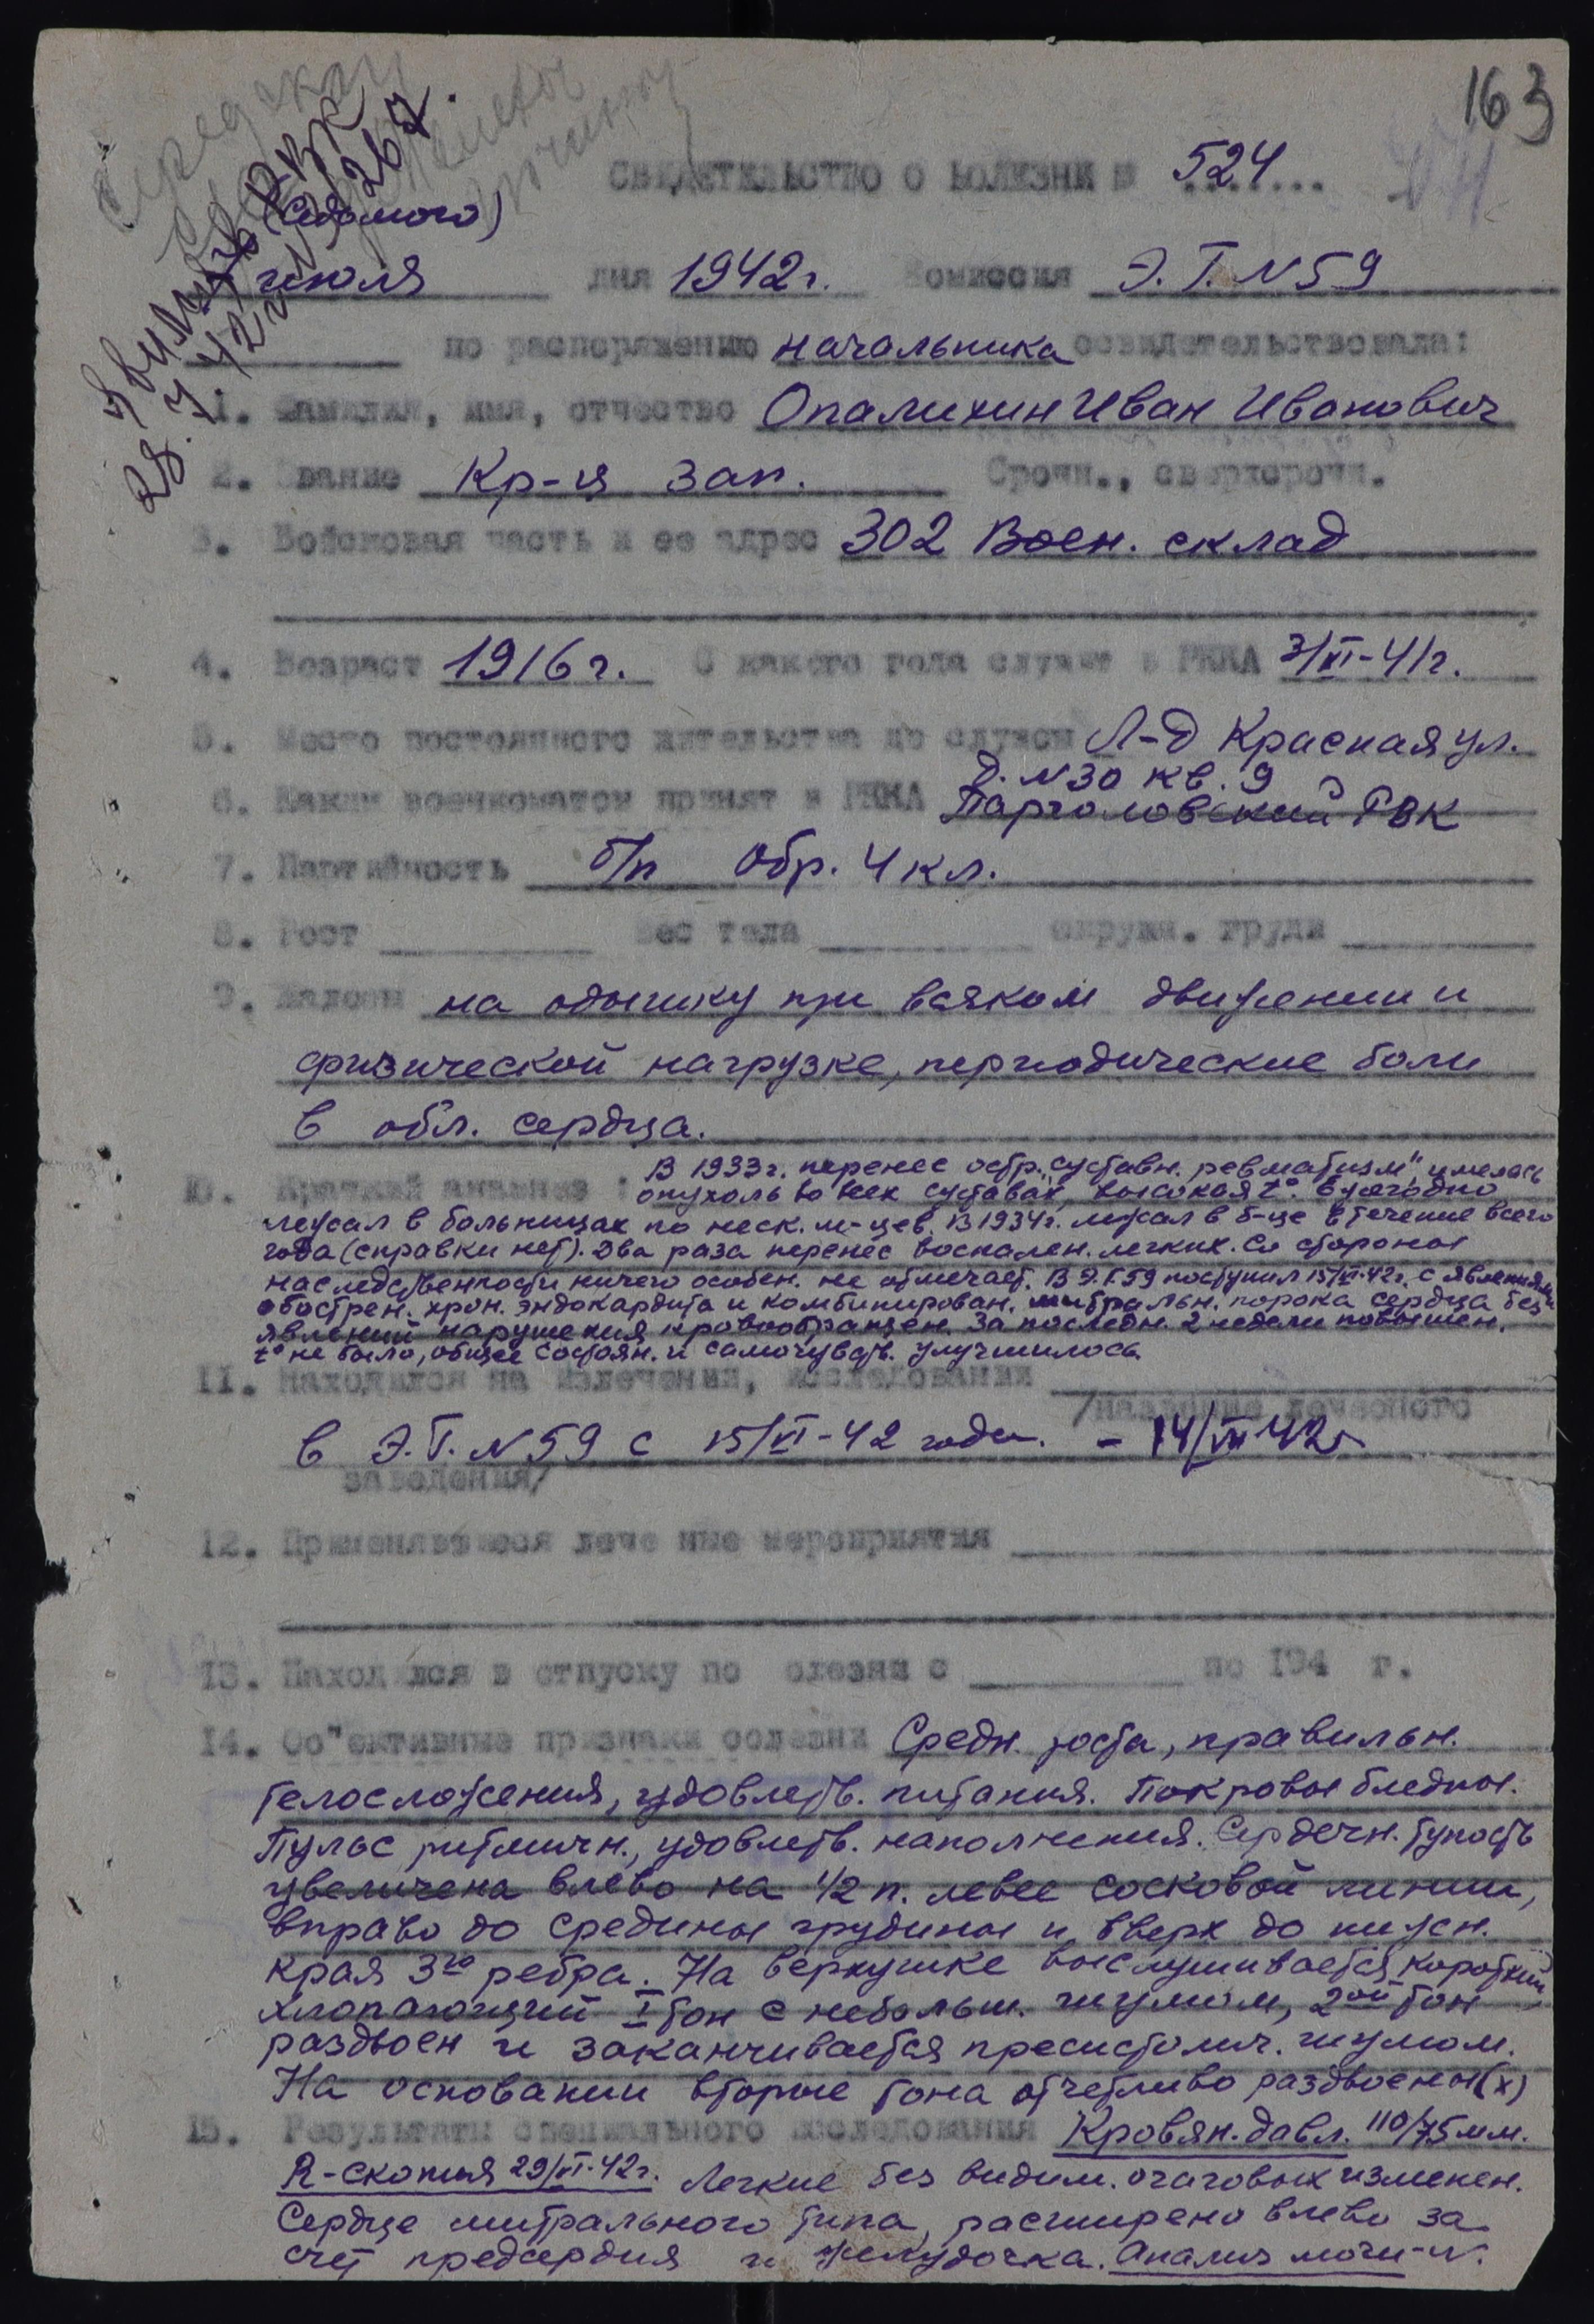 163
СВИДЕТЕЛЬСТВО О БОЛЕЗНИ № 524
(Седьмого)
июля дня 1942 г. Комиссия Э. Г. N 59
по распоряжению начальника освидетельствовала:
1. Фамилия, имя, отчество Опалихин Иван Иванович
2. Звание Кр-ц зап. Срочн., сверхсрочн.
3. Войсковая часть и ее адрес 302 Воен. склад
4. Возраст 1916 г. С какого года служит в РККА 3/XI-41 г.
5. Место постоянного жительства до службы Л-д Красная ул.
д. N 30 кв. 9
6. Каким военкоматом принят в РККА Парголовский РВК
7. Партийность б/п обр. 4 кл.
8. Рост Вес тела окружн. груди
9. Жалобы на одышку при всяком движении и
физической нагрузке, периодические боли
в обл. сердца.
10. Краткий анамнез: В 1933 г. перенес остр. "суставн. ревматизм", имелась
опухоль во всех суставах, высокая t°. Ежегодно
лежал в больницах по неск. м-цев. В 1934 г. лежал в б-це в течение всего
года (справки нет). Два раза перенес воспален. легких. Со стороны
наследственности ничего особен. не отмечает. В Э.Г. 59 поступил 15/VI-42 г. с явлениями
обострен. хрон. эндокардита и комбинирован. митральн. порока сердца без
явлений нарушения кровообращен. За последн. 2 недели повышен.
t° не было, общее состоян. и самочувств. улучшилось.
11. Находился на излечении, исследовании
/название лечебного
в Э.Г. N 59 с 15/VI-42 года. - 14/VII 42 г
заведения/
12. Применявшиеся лече ные мероприятия
13. Находился в отпуску по олезни с по 194 г.
14. Об"ективные признаки болезни Средн. роста, правильн.
телосложения, удовлетв. питания. Покровы бледны.
Пульс ритмичн., удовлетв. наполнения. Сердечн. тупость
увеличена влево на 1/2 п. левее сосковой линии,
вправо до средины грудины и вверх до нижн.
края 3го ребра. На верхушке выслушивается короткий
хлопающий I тон с небольш. шумом, 2ой тон
раздвоен и заканчивается пресистолич. шумом.
На основании вторые тона отчетливо раздвоены (х)
15. Результаты специального исследования Кровян. давл. 110/75 мм.
R-скопия 29/VI-42 г. Легкие без видим. очаговых изменен.
Сердце митрального типа, расширено влево за
счет предсердия и желудочка. Анализ мочи-N.